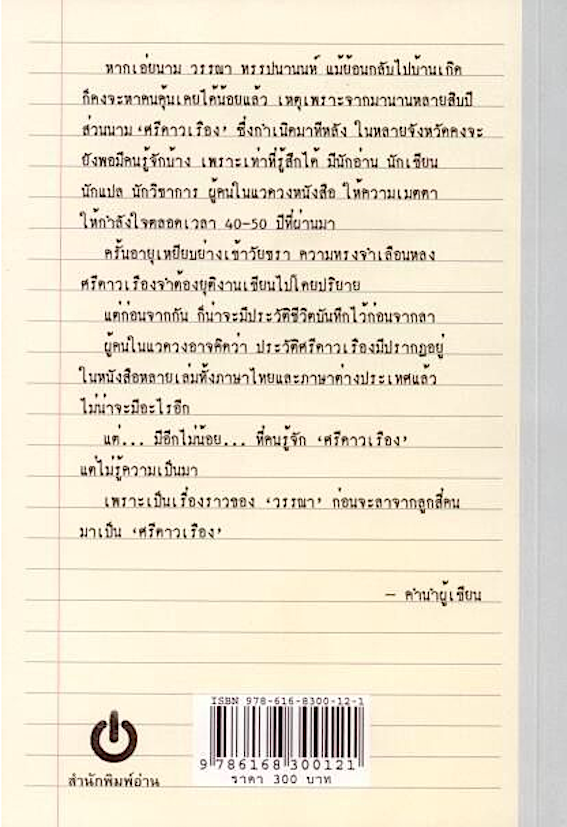 หากเอ่ยนาม วรรณา ทรรปนานนท์ แม้ย้อนกลับไปบ้านเกิด
ก็คงจะหาคนคุ้นเคยได้น้อยแล้ว เหตุเพราะจากมานานหลายสิบปี
ส่วนนาม ‘ศรีดาวเรือง’ ซึ่งกำเนิดมาทีหลัง ในหลายจังหวัดคงจะ
ยังพอมีคนรู้จักบ้าง เพราะเท่าที่รู้สึกได้ มีนักอ่าน นักเขียน
นักแปล นักวิชาการ ผู้คนในแวดวงหนังสือ ให้ความเมตตา
ให้กำลังใจตลอดเวลา 40-50 ปีที่ผ่านมา
ครั้นอายุเหยียบย่างเข้าวัยชรา ความทรงจำเลือนหลง
ศรีดาวเรืองจำต้องยุติงานเขียนไปโดยปริยาย
แต่ก่อนจากกัน ก็น่าจะมีประวัติชีวิตบันทึกไว้ก่อนจากลา
ผู้คนในแวดวงอาจคิดว่า ประวัติศรีดาวเรืองมีปรากฏอยู่
ในหนังสือหลายเล่มทั้งภาษาไทยและภาษาต่างประเทศแล้ว
ไม่น่าจะมีอะไรอีก
แต่... มีอีกไม่น้อย... ที่คนรู้จัก ‘ศรีดาวเรือง’
แต่ไม่รู้ความเป็นมา
เพราะเป็นเรื่องราวของ ‘วรรณา’ ก่อนจะลาจากลูกสี่คน
มาเป็น ‘ศรีดาวเรือง’
— คำนำผู้เขียน
ISBN 978-616-8300-12-1
9 786168 300121
ราคา 300 บาท
สำนักพิมพ์อ่าน